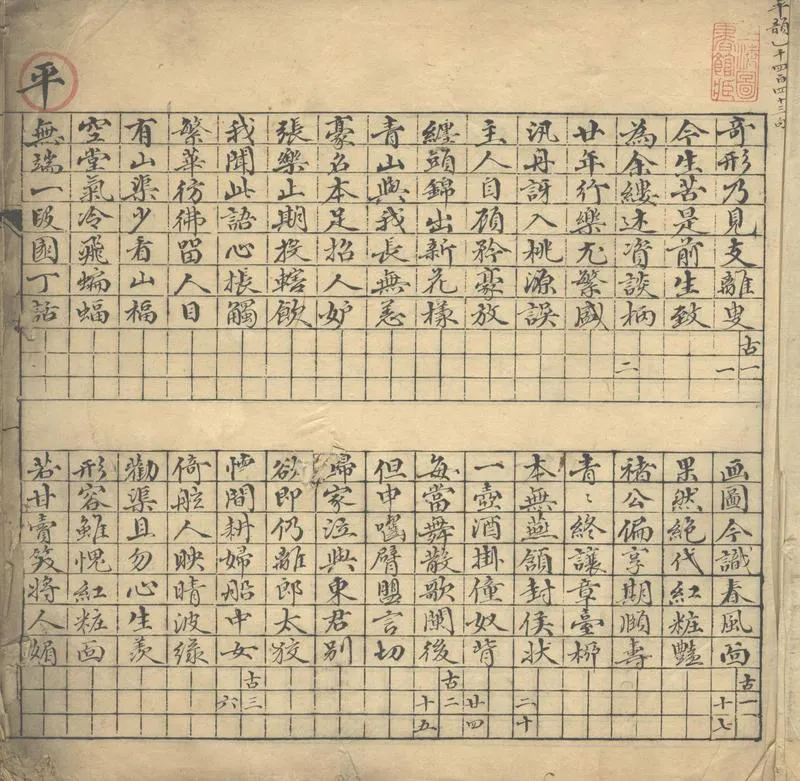 平韻
千四百四十三句
平
奇形乃見支離叟 古一 一
今生苦是前生致
為余縷述資談柄 二
廿年行樂尤繁盛
汎舟訝入桃源誤
主人自顧矜豪放
纏頭錦出新花樣
青山與我長無恙
豪名本足招人妒
張樂止期投轄飲
我聞此語心棖觸
繁華彷彿留人目
有山渠少看山福
空堂氣冷飛蝙蝠
無端一段園丁話
画圖今識春風面 古一 十七
果然絕代紅粧豔
褚公偏享期頤壽
青〻終讓章臺柳
本無燕頷封侯狀 二十
一壺酒掛僮奴背 廿四
每當舞散歌闌後 古二 十五
但申嚙臂盟言切
歸家泣與東君別
欲即仍離郎太狡
忙間耕婦船中女 古三 六
倚舵人映晴波綠
勸渠且勿心生羨
形容雖愧紅粧画
若甘賣笑將人媚